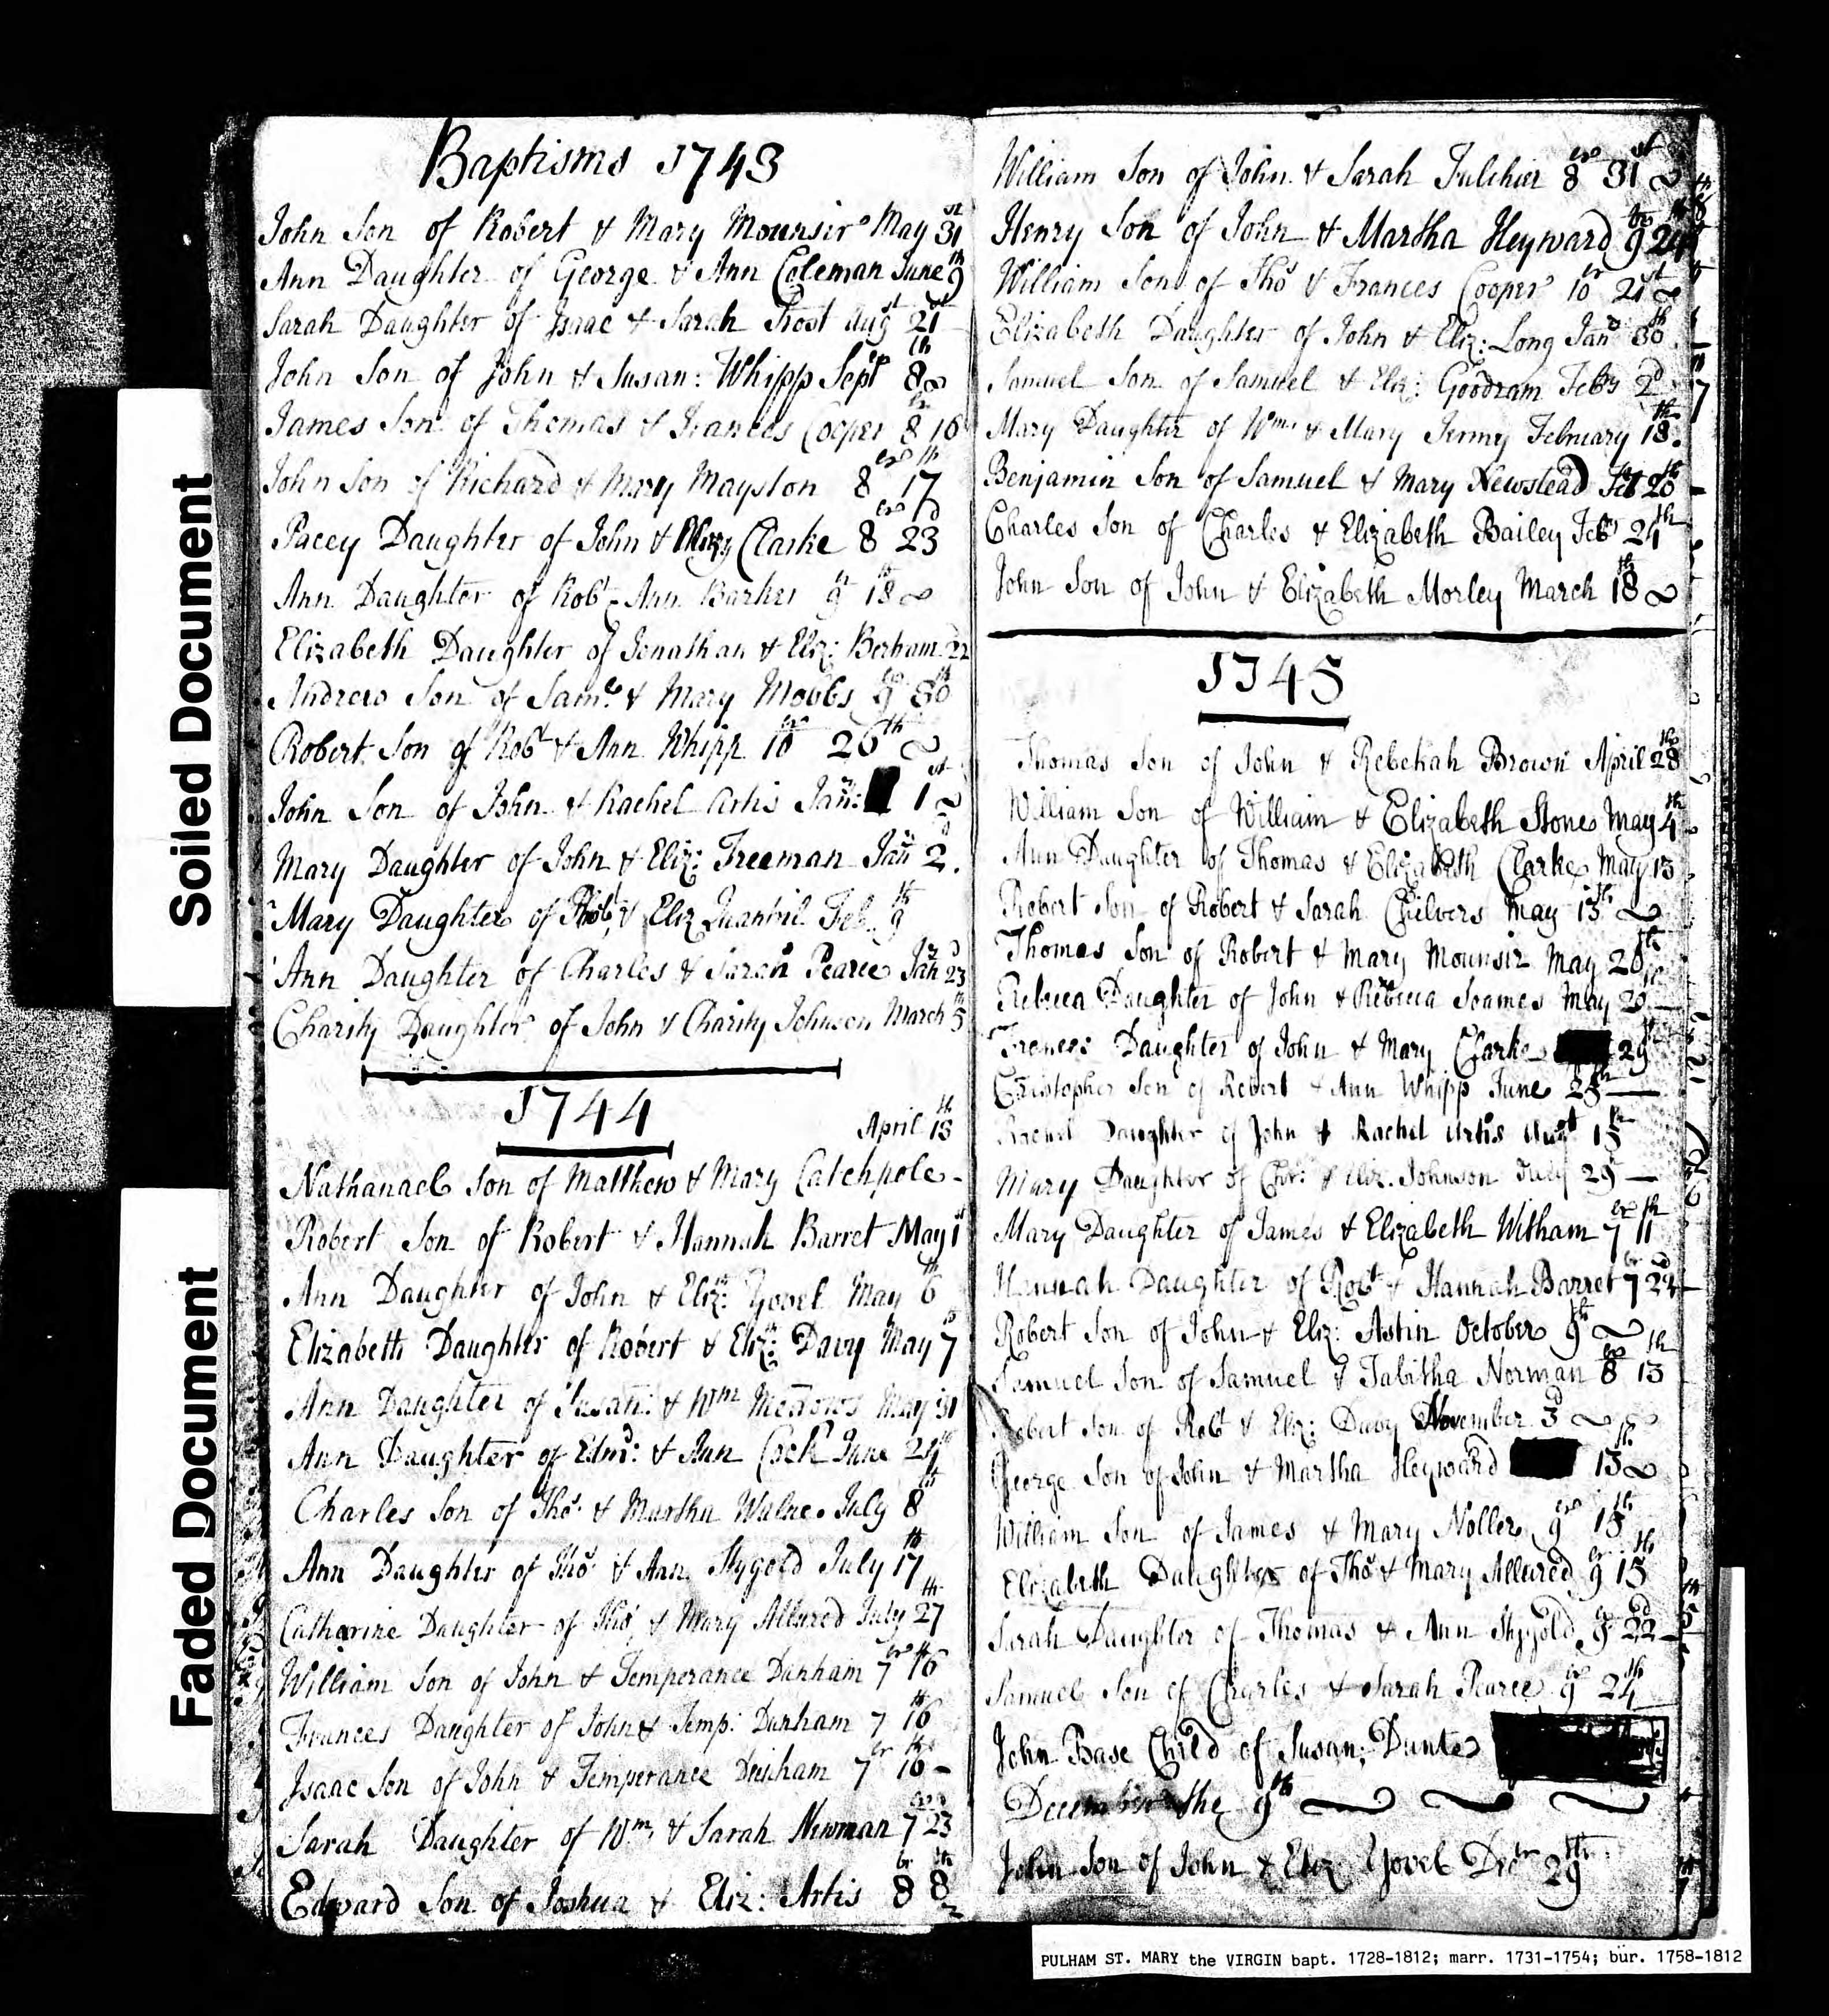 Baptisms 1743
John Son of Robert & Mary Mounsir May 31st
Ann Daughter of George & Ann Coleman June 9th
Sarah Daughter of Isaac & Sarah Frost Augst 21st
John Son of John & Susan: Whipp Sepr 8th
James Son of Thomas & Frances Cooper 8br 16
John Son of Richard & Mary Mayston 8br 17th
Pacey Daughter of John & Clarke 8br 23d
Ann Daughter of Robt Ann Barker 9br 18th
Elizabeth Daughter of Jonathan & Eliz: Berham 22
Andrew Son of Saml & Mary Mobbs 9br 30th
Robert Son of Robt & Ann Whipp 10br 26th
John Son of John & Rachel Artis Jany: 1st
Mary Daughter of John & Eliz: Freeman Jany 2d.
Mary Daughter of Robt, & Eliz Quantril Feb. 9th
Ann Daughter of Charles & Sarah Pearce Jan 23d
Charity Daughter of John & Charity Johnson March 5th
1744
April 15th
Nathanael Son of Matthew & Mary Catchpole
Robert Son of Robert & Hannah Barret May 1st
Ann Daughter of John & Eliz: Yovel May 6th
Elizabeth Daughter of Robert & Eliz: Davy May 7th
Ann Daughter of Susan: & Wm Meadows May 31
Ann Daughter of Edmd: & Ann Cock June 24th
Charles Son of Thos. & Martha Walne July 8th
Ann Daughter of Thos & Ann Stygold July 17th
Catharine Daughter of Thos, & Mary Allured July 27th
William Son of John & Temperance Dunham 7br 16th
Frances Daughter of John & Temp: Dunham 7 16th
Isaac Son of John & Temperance Dunham 7br 16th
Sarah Daughter of Wm, & Sarah Newman 7br 23
Edward Son of Joshua & Eliz: Artis 8br 8th
William Son of John & Sarah Fulchier 8br 31st
Henry Son of John & Martha Heyward 9br 24th
William Son of Thos & Frances Cooper 10br 21st
Elizabeth Daughter of John & Eliz: Long Jany 30th
Samuel Son of Samuel & Eliz: Goodram Feby 2d
Mary Daughter of Wm & Mary Jermy February 18th.
Benjamin Son of Samuel & Mary Newstead Feb 20th
Charles Son of Charles & Elizabeth Bailey Feby 24th
John Son of John & Elizabeth Morley March 18th
1745
Thomas Son of John & Rebekah Brown April 28th
William Son of William & Elizabeth Stone May 4th
Ann Daughter of Thomas & Elizabeth Clarke May 13
Robert Son of Robert & Sarah Chilvers May 15th
Thomas Son of Robert & Mary Mounsir May 20th
Rebecca Daughter of John & Rebecca Soames May 20
Frances Daughter of John & Mary Clarke 29th
Christopher Son of Robert & Ann Whipp June 25th
Rachel Daughter of John & Rachel Artis Augst 15th
Mary Daughter of Chr: & Eliz. Johnson July 29
Mary Daughter of James & Elizabeth Witham 7br 11th
Hannah Daughter of Robt & Hannah Barret 7br 22d
Robert Son of John & Eliz: Astin October 9th
Samuel Son of Samuel & Tabitha Norman 8br 13th
Robert Son of Robt & Eliz: Davy November 3d
George Son of John & Martha Heyward 15th
William Son of James & Mary Noller 9br 15th
Elizabeth Daughter of Thos & Mary Allured 9br 15th
Sarah Daughter of Thomas & Ann Stygold 9br 22d
Samuel Son of Charles & Sarah Pearce 9br 24th
John Base Child of Susan; Dunte
December the 9th
John Son of John & Eliz Yovel Decbr 29th
Soiled Document
Faded Document
PULHAM ST. MARY the VIRGIN bapt. 1728-1812; marr. 1731-1754; bur. 1758-1812